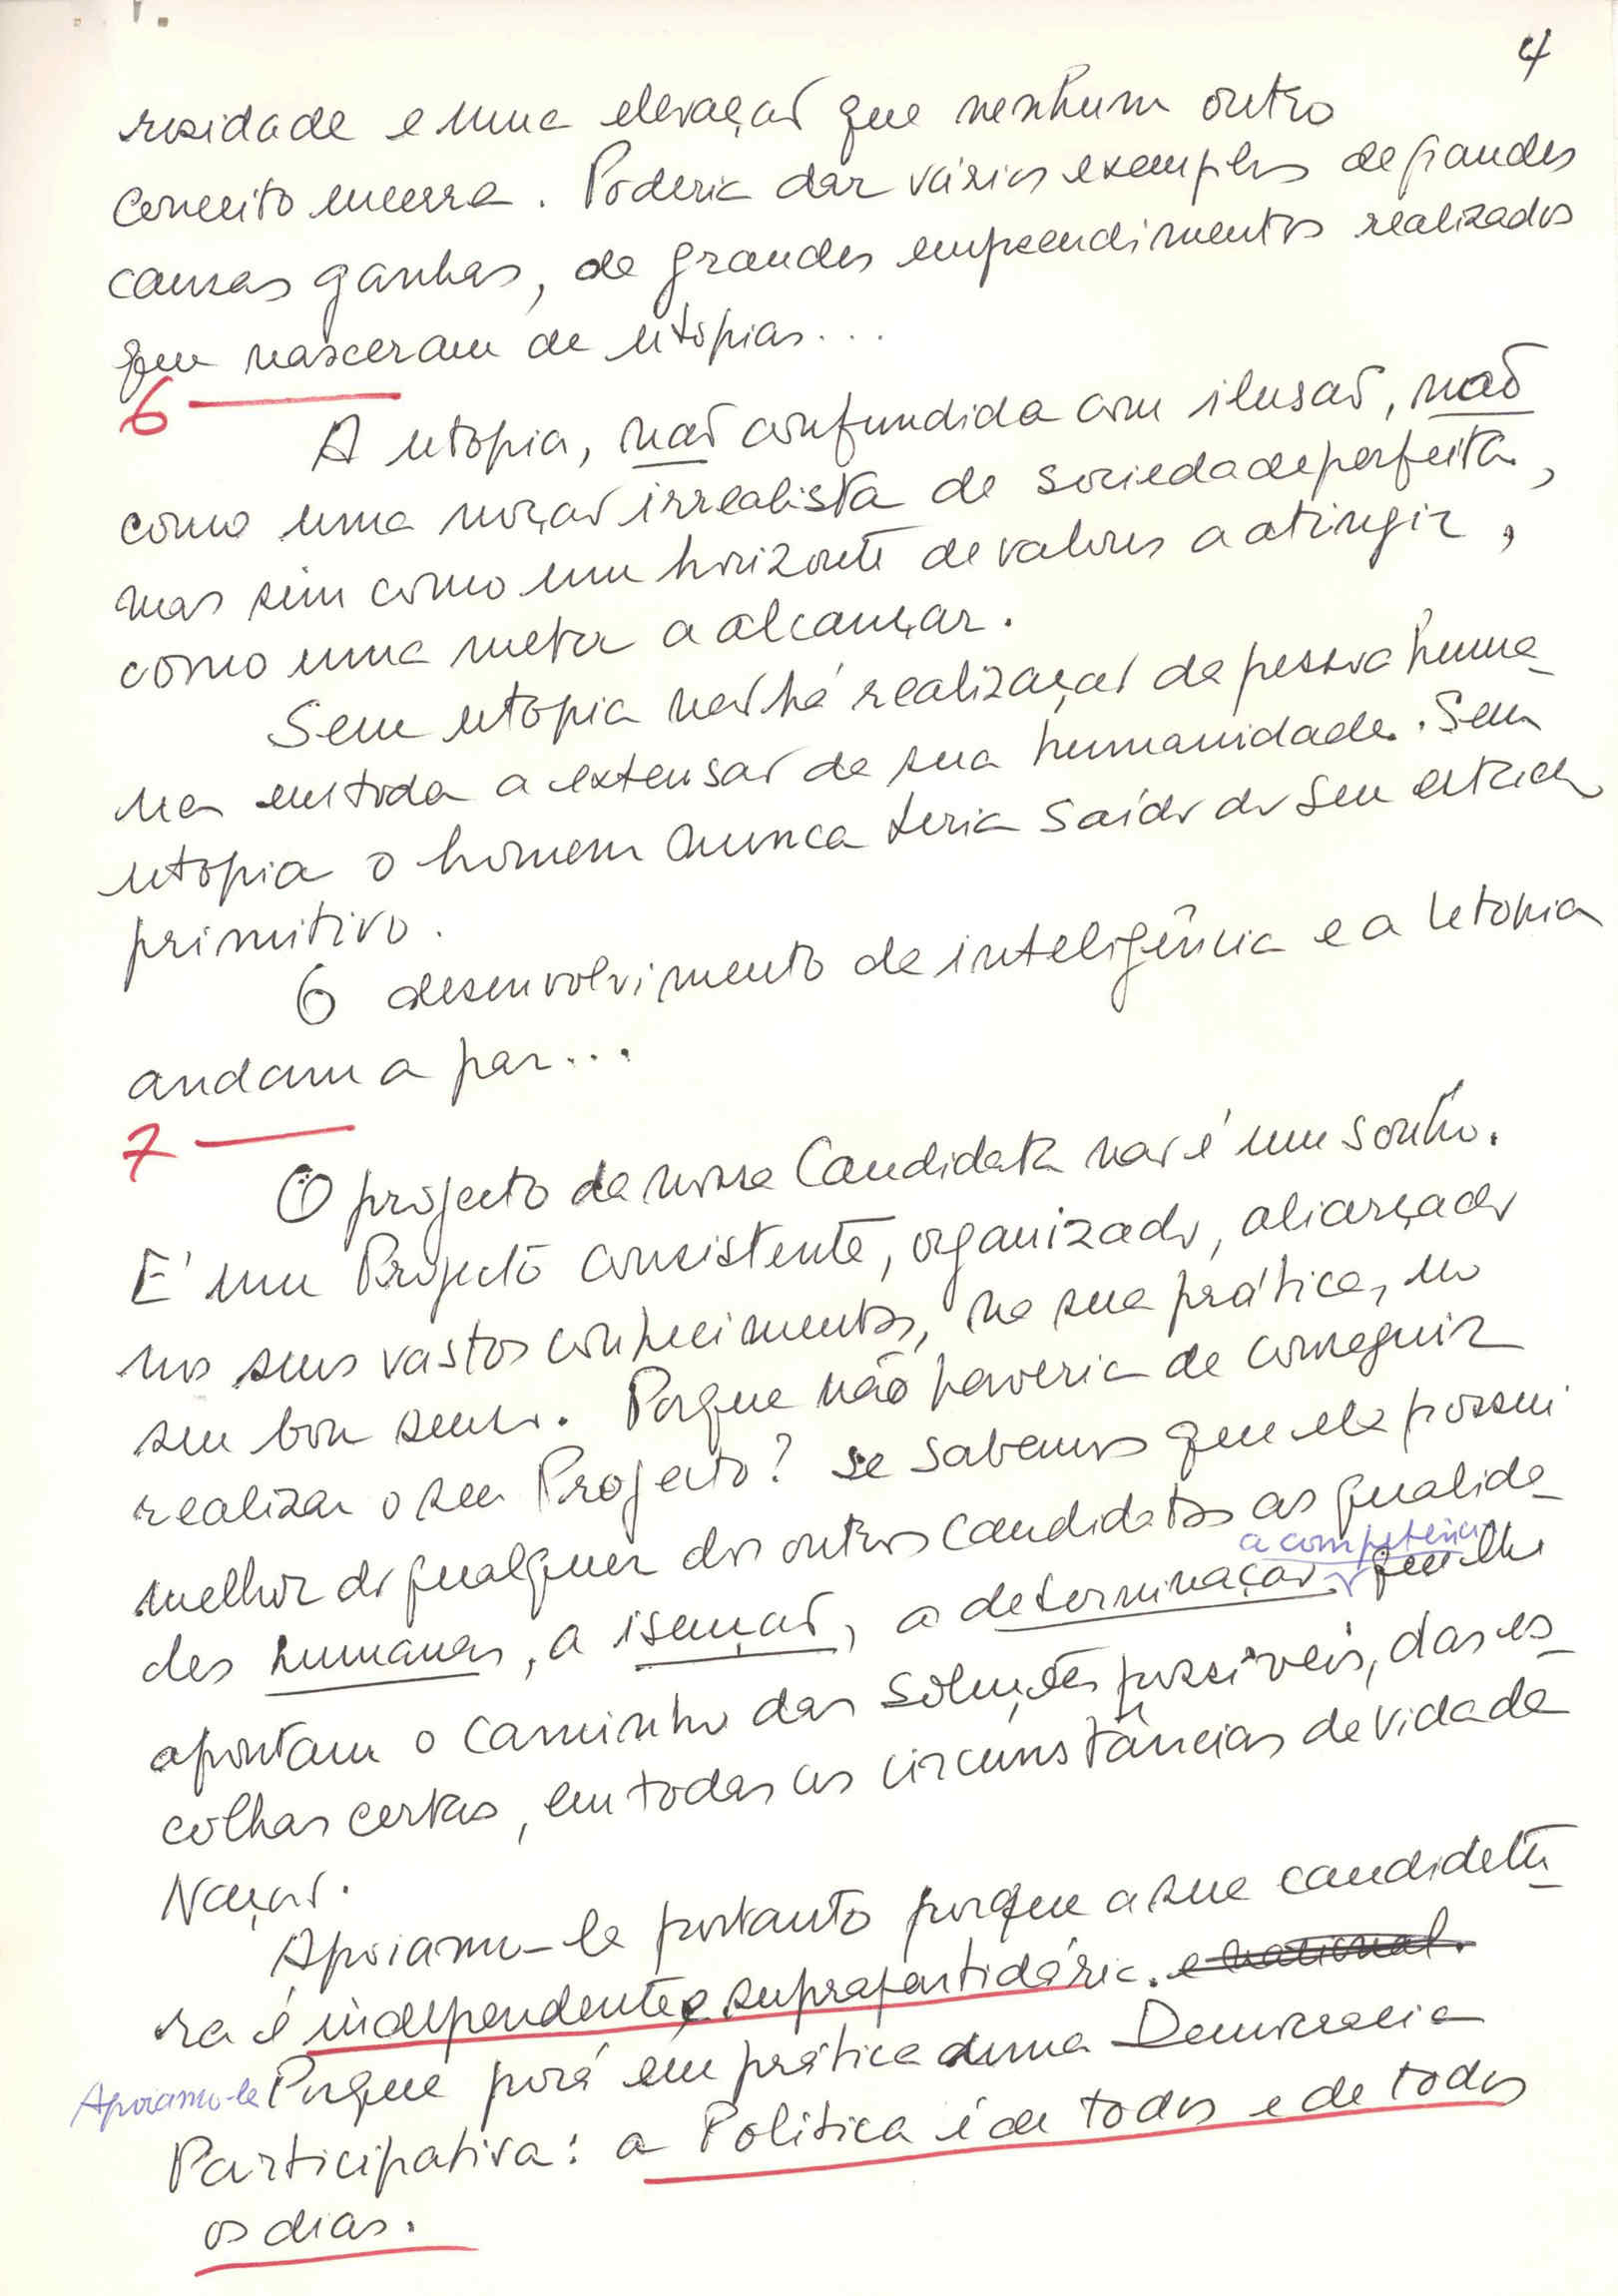 4
rosidade e uma elevação que nenhum outro
conceito encerra. Poderia dar vários exemplos de grandes
causas ganhas, de grandes empreendimentos realizados
que nasceram de utopias...
6
A utopia, não confundida com ilusão, não
como uma noção irrealista de sociedade perfeita,
mas sim como um horizonte de valores a atingir,
como uma meta a alcançar.
Sem utopia não há realização da pessoa huma-
na em toda a extensão da sua humanidade. Sem
utopia o homem nunca teria saído do seu estado
primitivo.
O desenvolvimento da inteligência e a utopia
andam a par...
7
O projecto da nossa Candidata não é um sonho.
É um Projecto consistente, organizado, aliarçado
nos seus vastos conhecimentos, na sua prática, no
seu bom senso. Porque não haveria de conseguir
realizar o seu Projecto? se sabemos que ela possui
melhor do qualquer dos outros candidatos as qualida-
a competência
des humanas, a isenção, a determinação que lhe
apontam o caminho das soluções possíveis, das es-
colhas certas, em todas as circunstâncias da vida da
Nação.
Apoiamo-la portanto porque a sua candidatu-
ra é independente e suprapartidária. e nacional.
Apoiamo-la Porque porá em prática uma Democracia
Participativa: a Política é de todos e de todos
os dias.